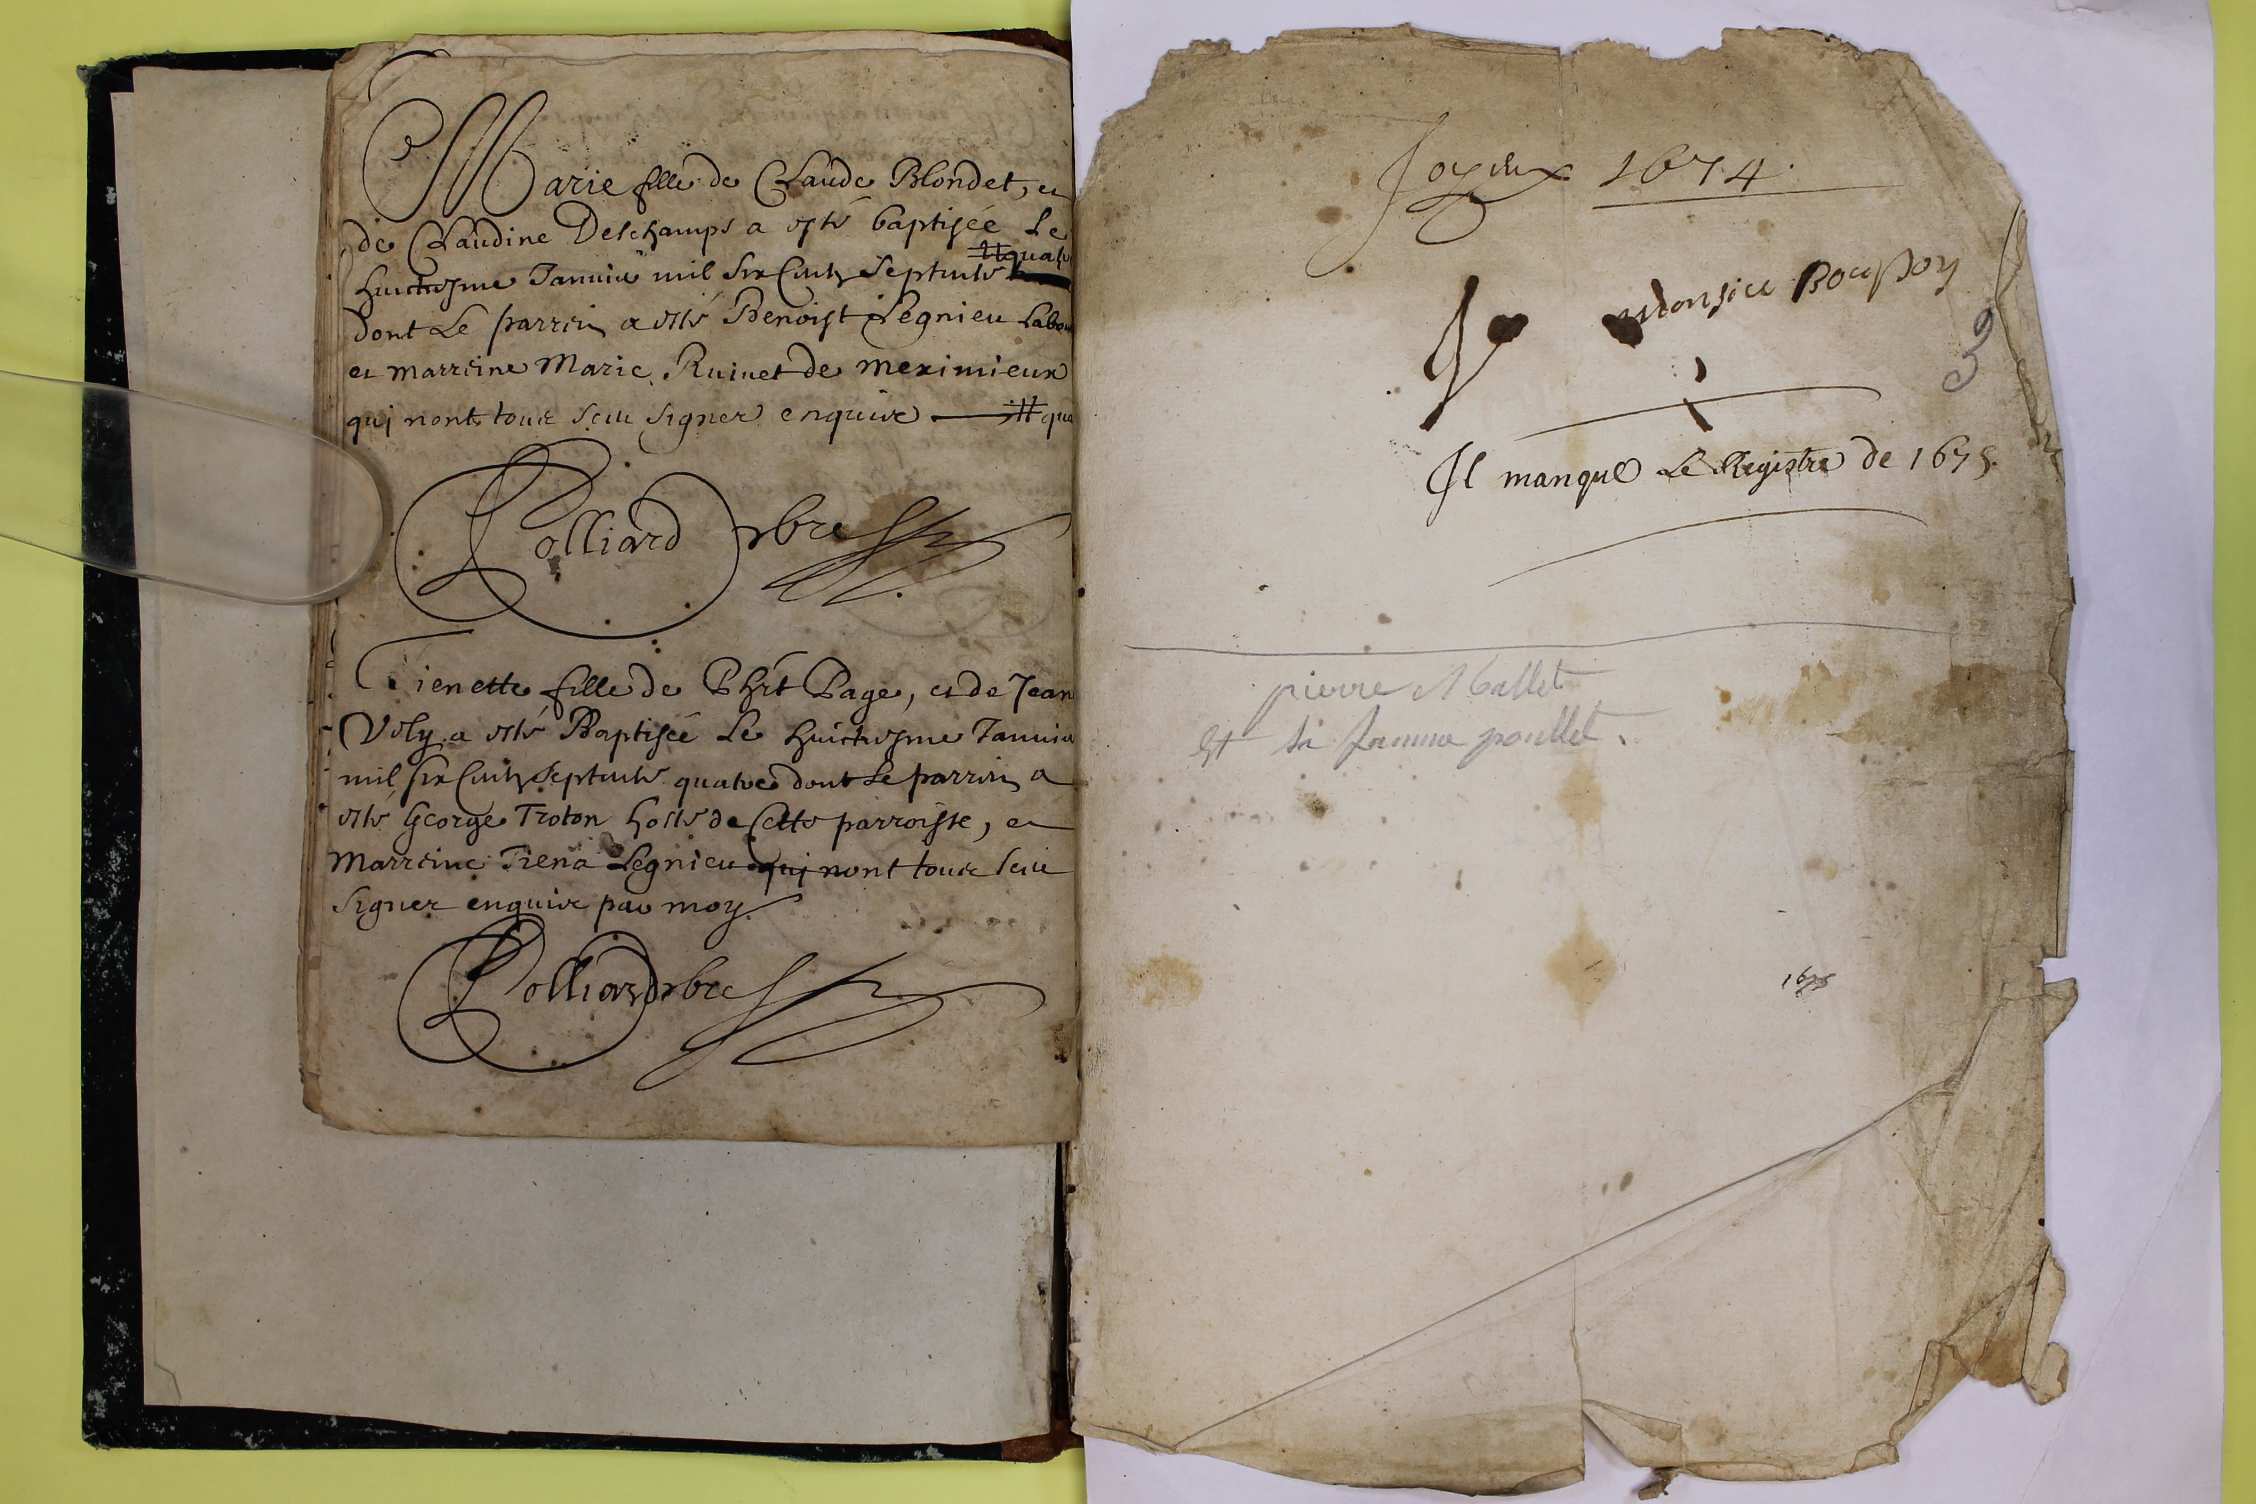 Marie fille de Claude Blondet, et
de Claudine Deschamps a esté baptisée Le
#quatre
huictiesme Janvier mil six Cents septente
dont Le parrin a esté Benoist Legnieu Labou
et marreine Marie Ruinet de meximieux
qui nont touts sceu signer enquis #qua
Polliard pbre
Tienette fille de Phit Page, et de Jean
Vely a esté Baptisée Le huictiesme Janvier
mil six Cents septente quatre dont Le parrin a
esté George Troton hoste de Cette parroisse, et
Marreine Tiena Legnieu qui nont touts sceu
signer enquis par moy.
Polliard pbre
Joyeux 1674.
monsieu
39
Il manque Le Registre de 1675.
pierre Mallet
Et sa femme poullet.
1675